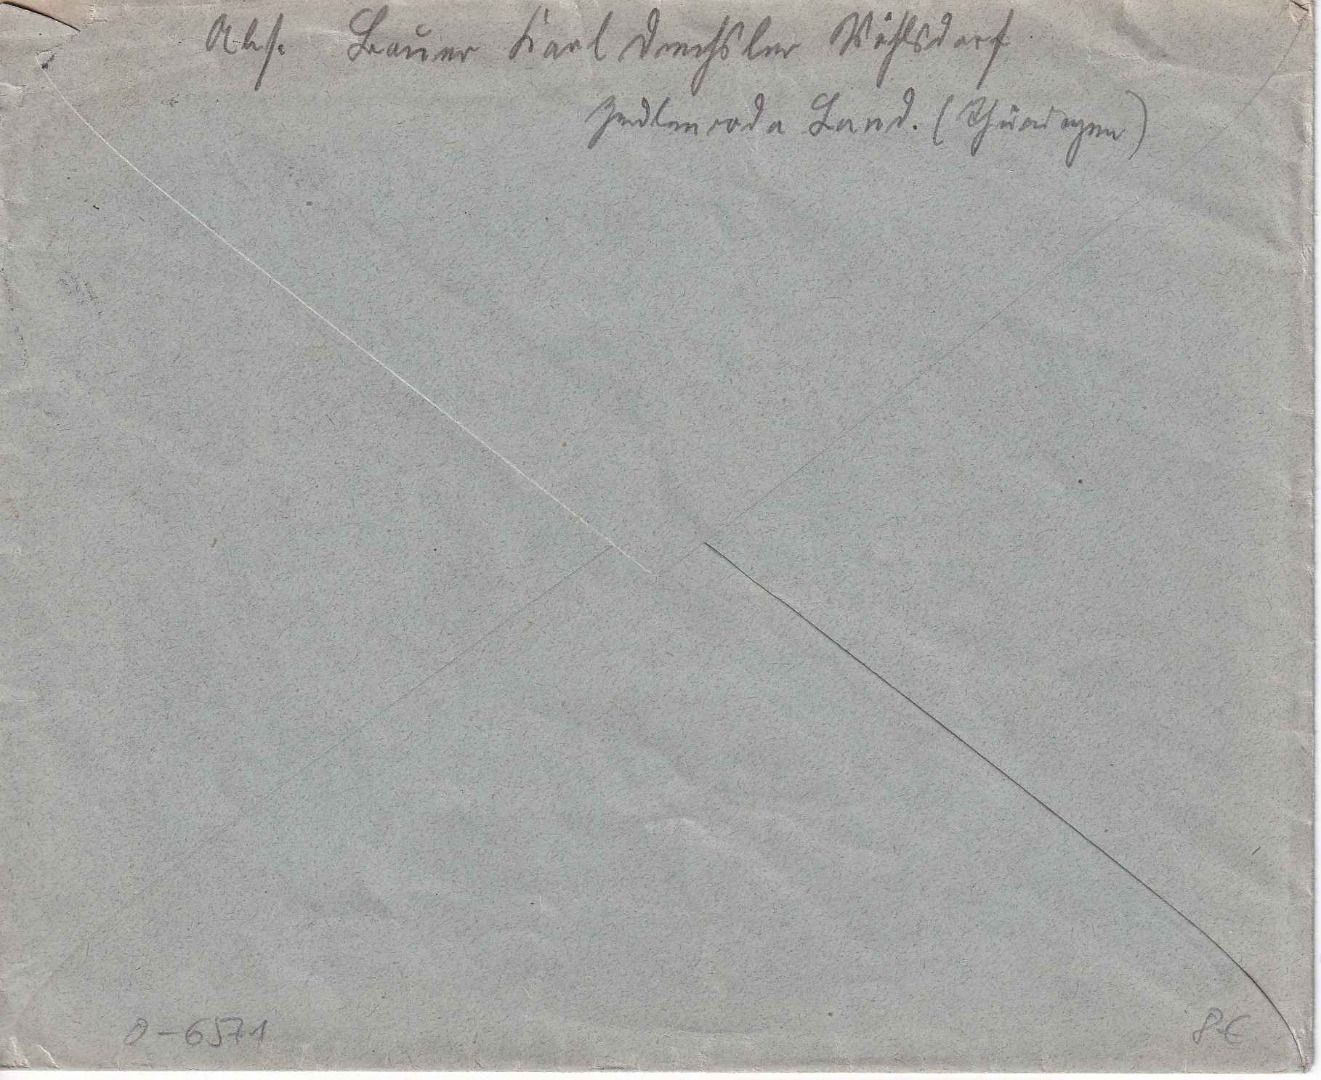 Abs. Bauer Karl Drechsler Wöhlsdorf
Zeulenroda Land. (Thüringen)
O-6571
8.-€